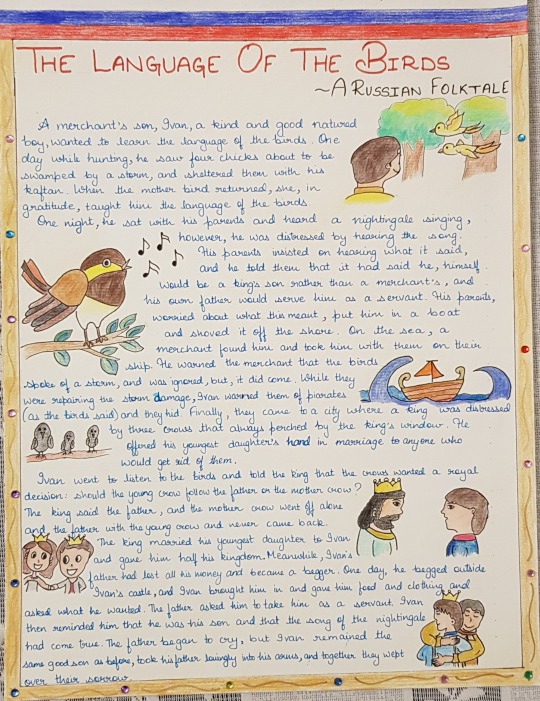 THE LANGUAGE OF THE BIRDS
~A RUSSIAN FOLKTALE
A merchant's son, Ivan, a kind and good natured
boy, wanted to learn the language of the birds. One
day while hunting, he saw four chicks about to be
swamped by a storm, and sheltered them with his
kaftan. When the mother bird returned, she, in
gratitude, taught him the language of the birds.
One night, he sat with his parents and heard a nightingale singing,
however, he was distressed by hearing the song.
His parents insisted on hearing what it said,
and he told them that it had said he, himself
would be a king's son rather than a merchant's, and
his own father would serve him as a servant. His parents,
worried about what this meant, put him in a boat
and shoved it off the shore. On the sea, a
merchant found him and took him with them on their
ship. He warned the merchant that the birds
spoke of a storm, and was ignored, but, it did come. While they
were repairing the storm damage, Ivan warned them of piarates
(as the birds said) and they hid. Finally, they came to a city where a king was distressed
by three crows that always perched by the king's window. He
offered his youngest daughter's hand in marriage to anyone who
would get rid of them.
Ivan went to listen to the birds and told the king that the crows wanted a royal
decision: should the young crow follow the father or the mother crow?
The king said the father, and the mother crow went off alone
and the father with the young crow and never came back.
The king married his youngest daughter to Ivan
and gave him half his kingdom. Meanwhile, Ivan's
father had lost all his money and became a begger. One day, he begged outside
Ivan's castle, and Ivan brought him in and gave him food and clothing and
asked what he wanted. The father asked him to take him as a servant. Ivan
then reminded him that he was his son and that the song of the nightingale
had come true. The father began to cry, but Ivan remained the
same good son as before, took his father lovingly into his arms, and together they wept
over their sorrow.